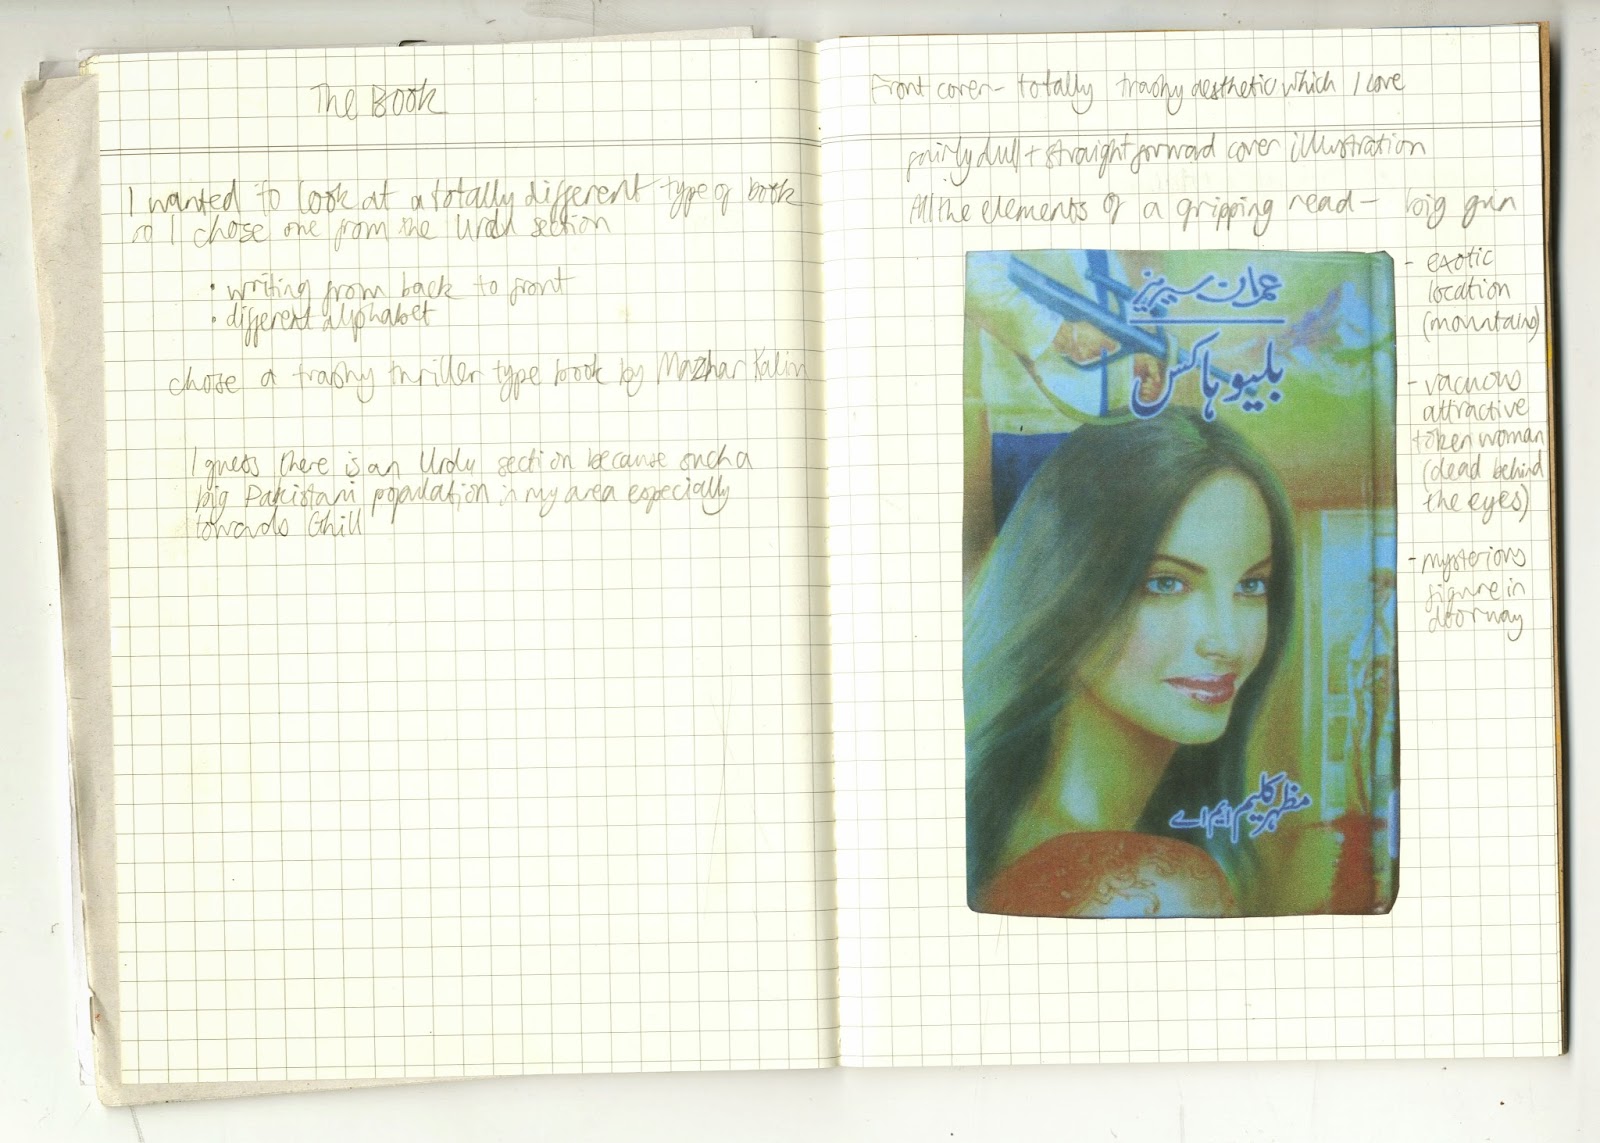 The Book
I wanted to look at a totally different type of book
so I chose one from the Urdu section
• writing from back to front
• different alphabet
chose a trashy thriller type book by Mazhar Kalim
I guess there is an Urdu section because such a
big Pakistani population in my area especially
towards Ghill
Front cover - totally trashy aesthetic which I love
fairly dull + straightforward cover illustration
All the elements of a gripping read - big gun
- exotic
location
(mountains)
- vacuous
attractive
token woman
(dead behind
the eyes)
- mysterious
figure in
doorway
عمران سیریز
بلیو ہاکس
مظہر کلیم ایم اے